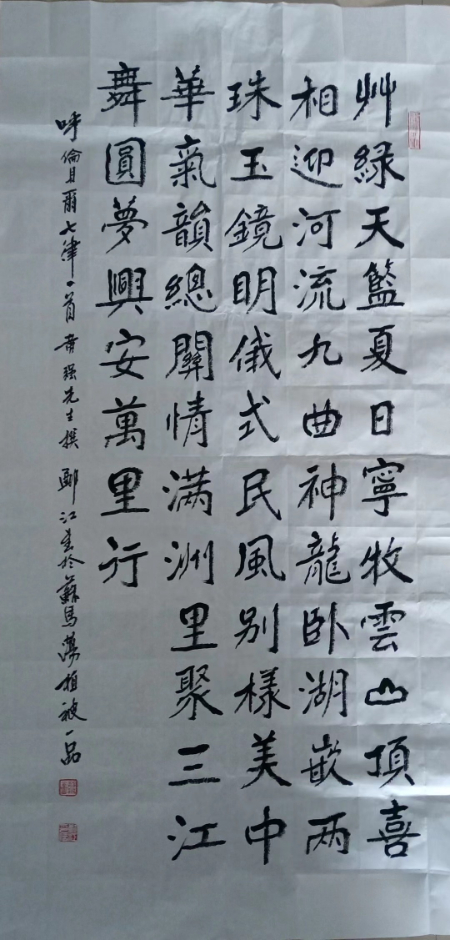 艸綠天籃夏日寧牧雲山頂喜
相迎河流九曲神龍臥湖嵌两
珠玉鏡明儀式民風别樣美中
華氣韻總關情满洲里聚三江
舞圓夢興安萬里行
呼倫貝爾七律一首 强先生撰 鄭江書於蘇馬蕩植被一品